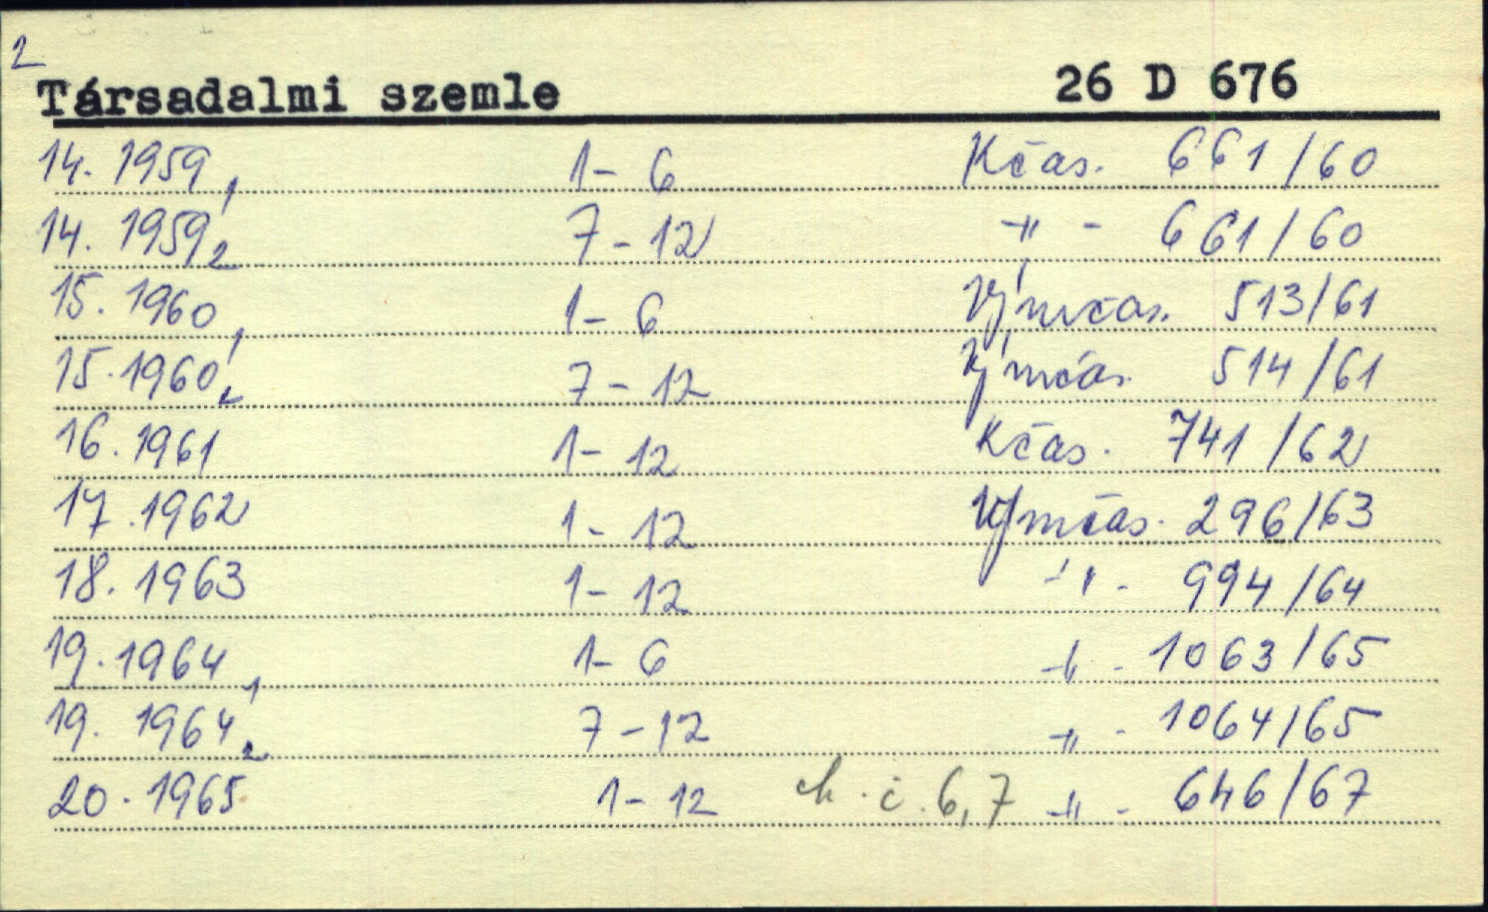 2
Társadalmi szemle 26 D 676
14. 1959,1 1-6 Kčas. 661/60
14. 1959,2 7-12 -"- 661/60
15. 1960,1 1-6 Výmčas. 513/61
15. 1960,2 7-12 Výmčas. 514/61
16. 1961 1-12 Kčas. 741/62
17. 1962 1-12 Výmčas. 296/63
18. 1963 1-12 -"- 994/64
19. 1964,1 1-6 -"- 1063/65
19. 1964,2 7-12 -"- 1064/65
20. 1965 1-12 ch. č. 6,7 -"- 646/67